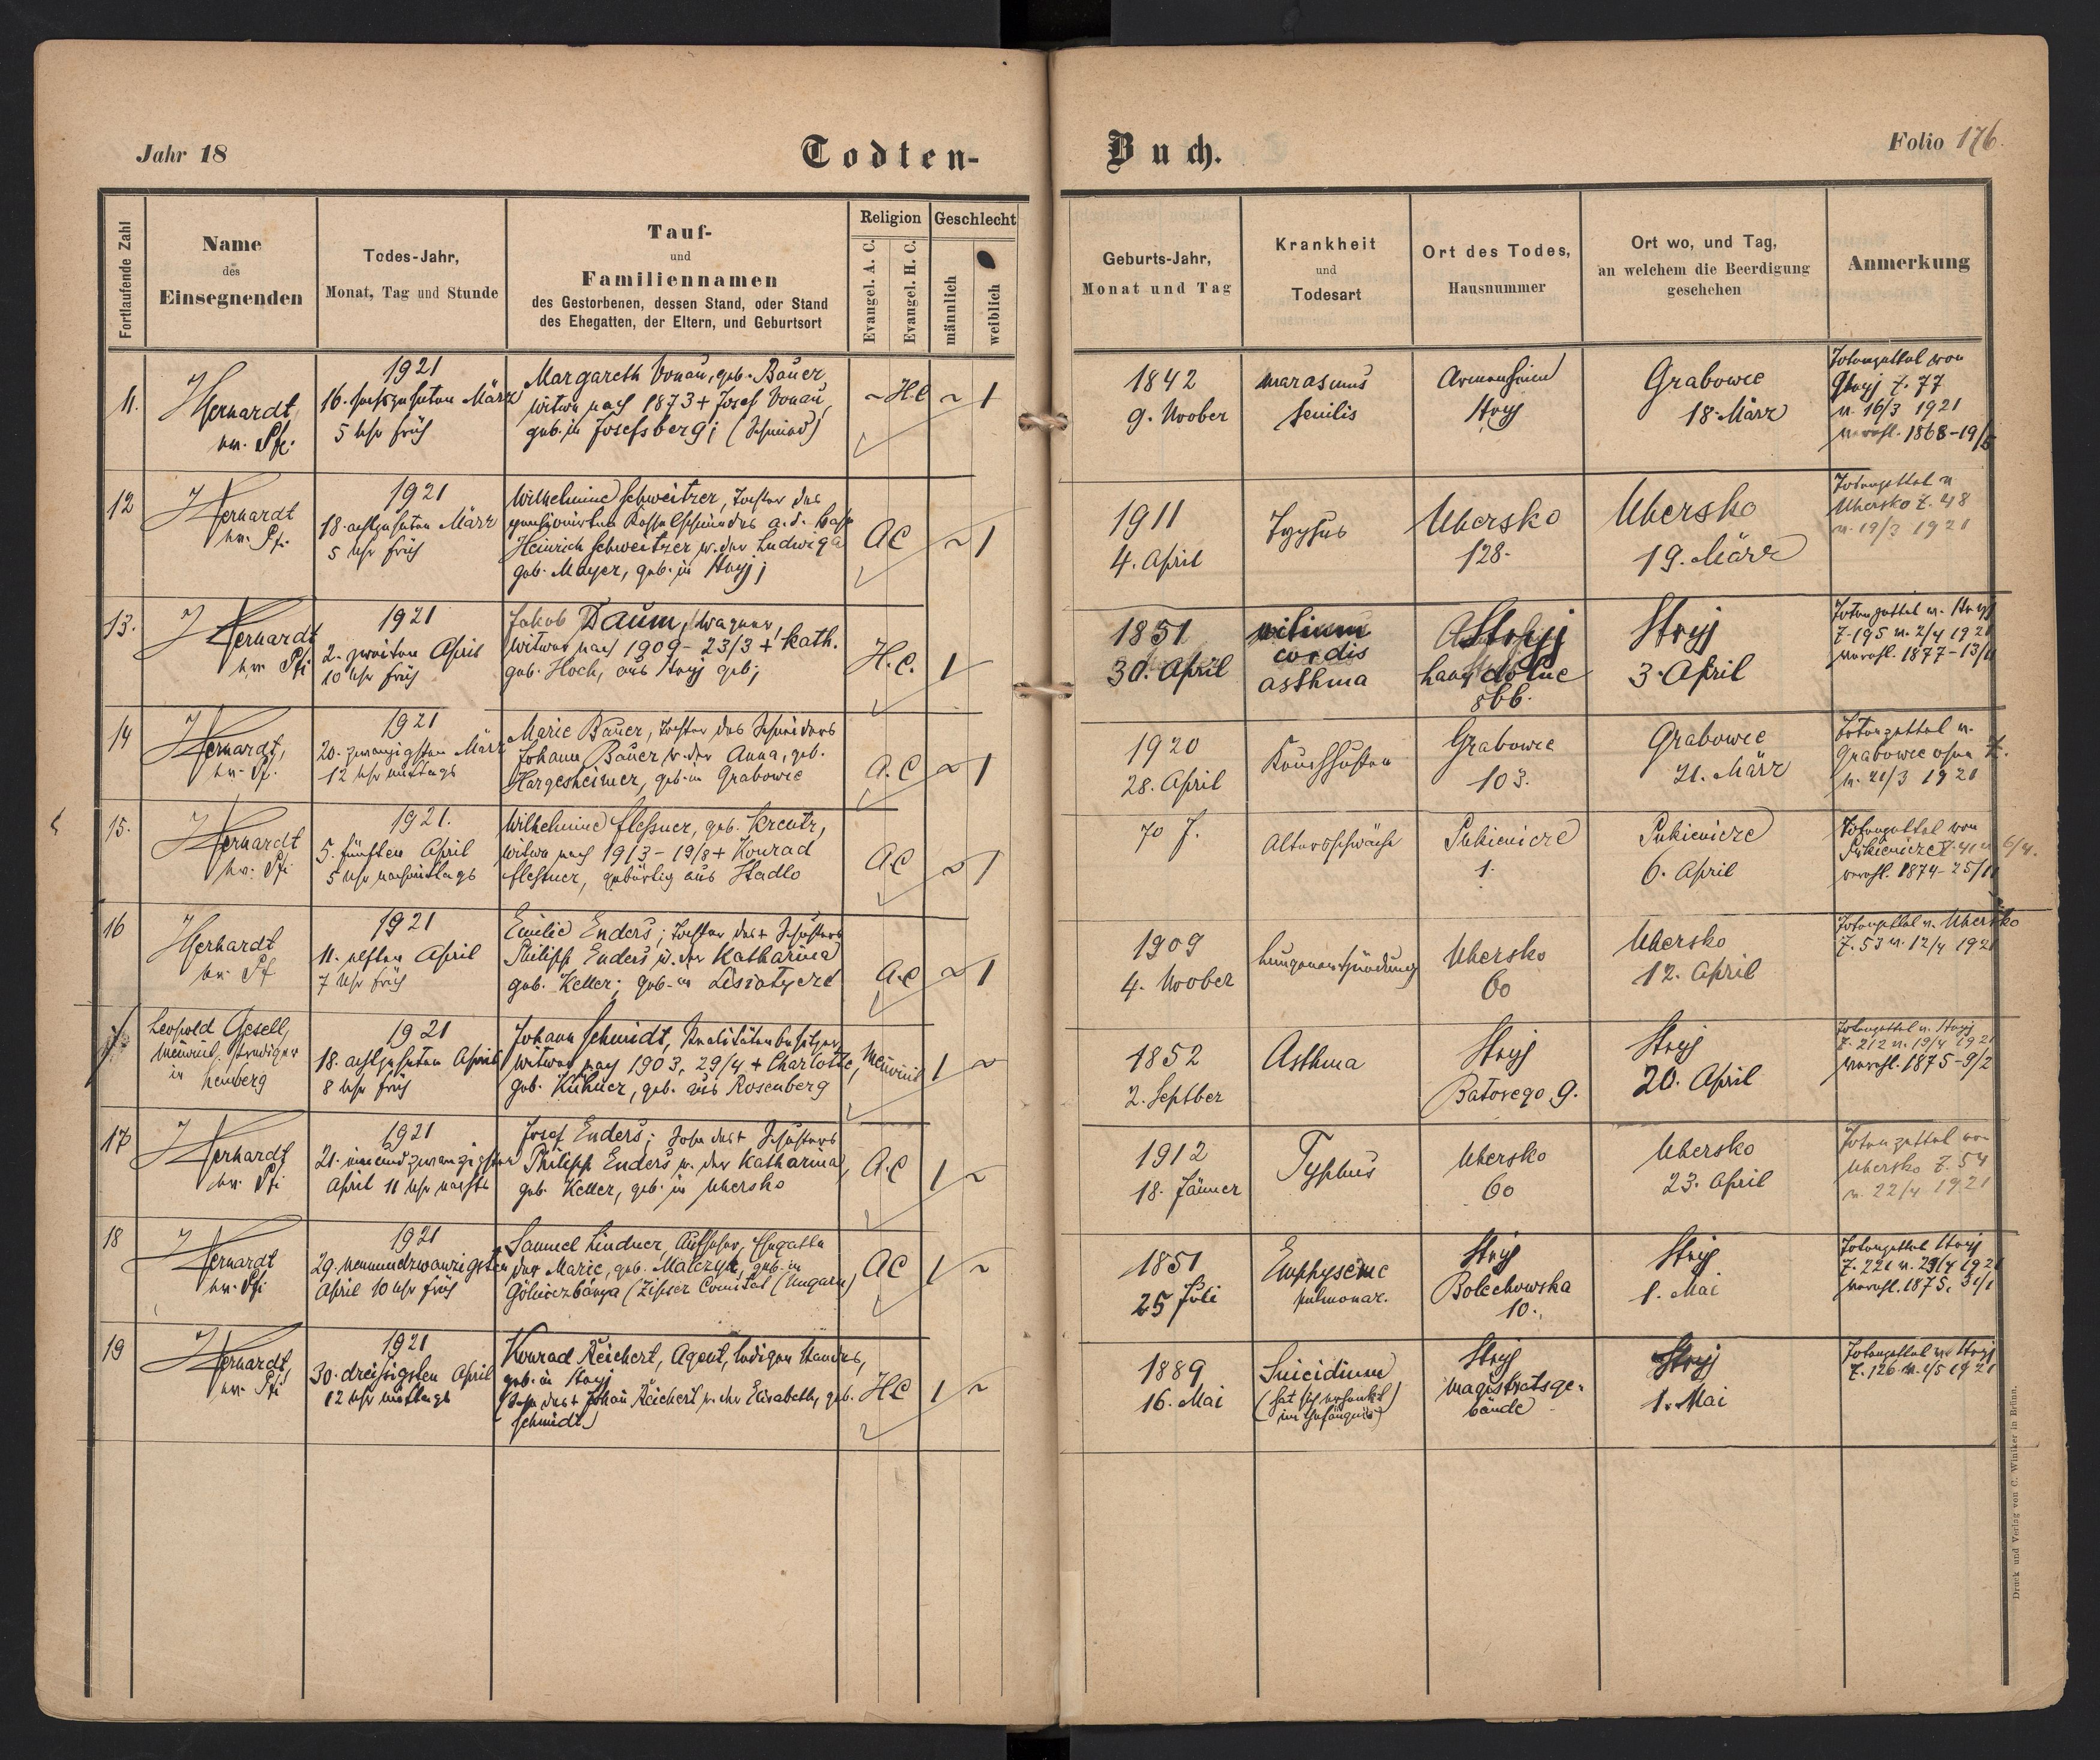 Jahr 18
Todten-
Buch.
Folio 176.
Fortlaufende Zahl
Name
des
Einsegnenden
Todes-Jahr,
Monat, Tag und Stunde
Tauf-
und
Familiennamen
des Gestorbenen, dessen Stand, oder Stand
des Ehegatten, der Eltern, und Geburtsort
Religion
Evangel. A. C.
Evangel. H. C.
Geschlecht
männlich
weiblich
Geburts-Jahr,
Monat und Tag
Krankheit
und
Todesart
Ort des Todes,
Hausnummer
Ort wo, und Tag,
an welchem die Beerdigung
geschehen
Anmerkung
11.
Gerhardt
1921
16. sechszehnten März
5 Uhr früh
Margareth Vonau, geb. Bauer
Witwe nach 1873 + Josef Vonau,
geb. in Josefsberg; (Schmied)
~ H.C ~ 1
1842
9. Novber
marasmus
senilis
Armenheim
Stryj
Grabowce
18. März
Totenzettel von
Stryj Z. 77
v. 16/3 1921
verehl. 1868-19/5
12
1921
18. achtzehnten März
5 Uhr früh
Wilhelmine Schweitzer, Tochter des
pensionierten Kesselschmiedes a. d. Bahn
Heinrich Schweitzer u. der Ludwiga
geb. Mayer, geb. in Stryj;
AC ~ 1
1911
4. April
Typhus
Uhersko
128.
Uhersko
19. März
Totenzettel v.
Uhersko Z. 48
v. 19/3 1921
13.
1921
2. zweiten April
10 Uhr früh
Jakob Daum, Wagner,
Witwer nach 1909 - 23/3 + Kath.
geb. Hoch, aus Stryj geb;
H.C. 1
1851
30. April
vitium
cordis
asthma
Stryj
866.
Stryj
3. April
Totenzettel v. Stryj
Z. 195 v. 2/4 1921
verehl. 1877-13/11
14
1921
20. zwanzigsten März
12 Uhr mittags
Marie Bauer, Tochter des Schneiders
Johann Bauer u. der Anna, geb.
Hargesheimer, geb. in Grabowce
A.C ~ 1
1920
28. April
Keuchhusten
Grabowce
103.
Grabowce
21. März
Totenzettel v.
Grabowce ohne Z.
v. 21/3 1921
15.
1921.
5. fünften April
5 Uhr nachmittags
Wilhelmine Flessner, geb. Kreutz,
Witwe nach 1913 - 19/8 + Konrad
Flessner, gebürtig aus Stadlo
AC ~ 1
70 J.
Altersschwäche
Pukienicze
1.
Pukienicze
6. April
Totenzettel von
Pukienicze Z. 41 v. 6/4.
verehl. 1874-25/11
16
1921
11. elften April
7 Uhr früh
Emilie Enders; Tochter des + Schusters
Philipp Enders u. der Katharina
geb. Keller; geb. in Lisiatycze
A.C ~ 1
1909
4. Novber
Lungenentzündung
Uhersko
60
Uhersko
12. April
Totenzettel v. Uhersko
Z. 53 v. 12/4 1921
Leopold Gesell,
Mennonit. Prediger
in Lemberg
1921
18. achtzehnten April
8 Uhr früh
Johann Schmidt, Realitätenbesitzer
Witwer nach 1903, 29/4 + Charlotte,
geb. Kühner, geb. aus Rosenberg
Mennonit 1 ~
1852
2. Septber
Asthma
Stryj
Batorego 9.
Stryj
20. April
Totenzettel v. Stryj
Z. 212 v. 19/4 1921
verehl. 1875-9/2
17
1921
21. einundzwanzigsten
April 11 Uhr nachts
Josef Enders; Sohn des + Schusters
Philipp Enders u. der Katharina,
geb. Keller, geb. in Uhersko
A.C 1 ~
1912
18. Jänner
Typhus
Uhersko
60
Uhersko
23. April
Totenzettel von
Uhersko Z. 54
v. 22/4 1921
18
1921
29. neunundzwanzigsten
April 10 Uhr früh
Samuel Lindner, Aufseher, Ehegatte
der Marie, geb. Malczyk, geb. in
Gölniczbánya (Zipser Comitat (Ungarn)
AC 1 ~
1851
25 Juli
Emphyseme
pulmonar.
Stryj
Bolechowska
10.
Stryj
1. Mai
Totenzettel Stryj
Z. 221 v. 29/4 1921
verehl. 1875, 31/1
19
1921
30. dreissigsten April
12 Uhr mittags
Konrad Reichert, Agent, ledigen Standes,
geb. in Stryj
(Sohn des + Johann Reichert u. der Elisabeth, geb.
Schmidt)
H.C 1 ~
1889
16. Mai
Suicidium
(hat sich erhenkt
im Gefängnis)
Stryj
Magistratsge-
bäude
Stryj
1. Mai
Totenzettel v. Stryj
Z. 126 v. 1/5 1921
Druck und Verlag von C. Winiker in Brünn.